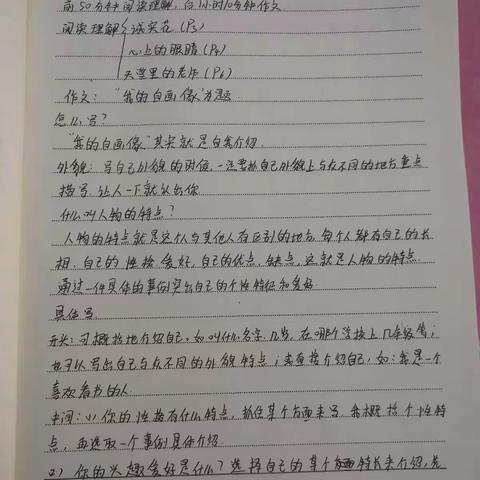 前50分钟阅读理解,后1小时10分钟作文.
阅读理解 诚实花(P5)
心上的眼睛(P4)
天堂里的老师(P6)
作文: “我的自画像”为题
怎么写?
“我的自画像”其实就是自我介绍.
外貌: 写自己外貌的时候, 一定要抓自己外貌上与众不同的地方重点
描写. 让人一下就认出你
什么叫人物的特点?
人物的特点就是这个人与其他人有区别的地方, 每个人都有自己的长
相, 自己的性格、爱好, 自己的优点、缺点, 这就是人物的特点.
通过一件具体的事例突出自己的个性特征和爱好.
具体写.
开头: 可概括地介绍自己, 如叫什么名字, 几岁, 在哪个学校上几年级等;
也可以写出自己与众不同的外貌特点; 或直接介绍自己, 如: 我是一个
喜欢看书的人.
中间: (1) 你的性格有什么特点, 抓住某个方面来写. 先概括个性特
点, 再选取一个事例具体介绍
(2) 你的兴趣爱好是什么? 选择自己的某个方面特长来介绍, 先